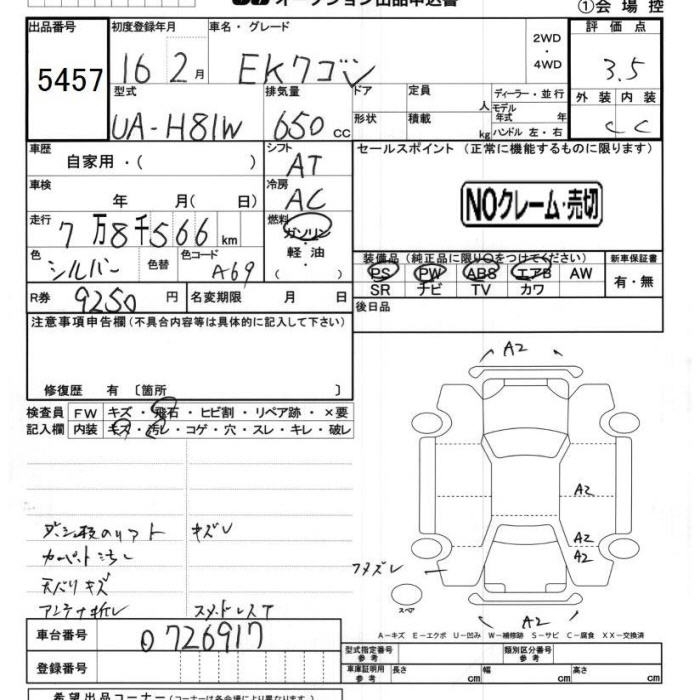 オークション出品申込書
①会場控
出品番号
初度登録年月
車名・グレード
2WD
・
4WD
評価点
5457
16 2月
EKワゴン
3.5
型式
排気量
ドア
定員
人
ディーラー・並行
モデル年式
年
外装
内装
UA-H81W
650 cc
形状
積載
kg
ハンドル 左・右
C C
車歴
自家用・( )
シフト
AT
セールスポイント (正常に機能するものに限ります)
車検
年 月( 日)
冷房
AC
NOクレーム・売切
走行
7万8千566km
燃料
ガソリン
・
軽油
( )
色
シルバー
色替
色コード
A69
装備品(純正品に限り○をつけてください)
新車保証書
PS PW ABS エアB AW
SR ナビ TV カワ
有・無
R券
9250円
名変期限 月 日
後日品
注意事項申告欄(不具合内容等は具体的に記入して下さい)
修復歴 有 〔箇所 〕
検査員
記入欄
FW キズ・飛石・ヒビ割・リペア跡・×要
内装 キズ・汚レ・コゲ・穴・スレ・キレ・破レ
A2
A2
A2
A2
キズレ
天バリキズ
アンテナ折レ
フタズレ
スペア
A2
A-キズ E-エクボ U-凹み W-補修跡 S-サビ C-腐食 XX-交換済
車台番号
0726917
登録番号
型式指定番号
参考
類別区分番号
参考
車庫証明用
参考
長さ cm
幅 cm
高さ cm
希望出品コーナー(コーナーは各会場により異なります)